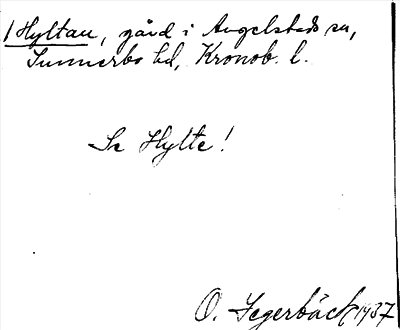 /Hyltan, gård i Angelstads sn,
Sunnerbo hd, Kronob. l.
Se Hylte!
O. Segerbäck 1937